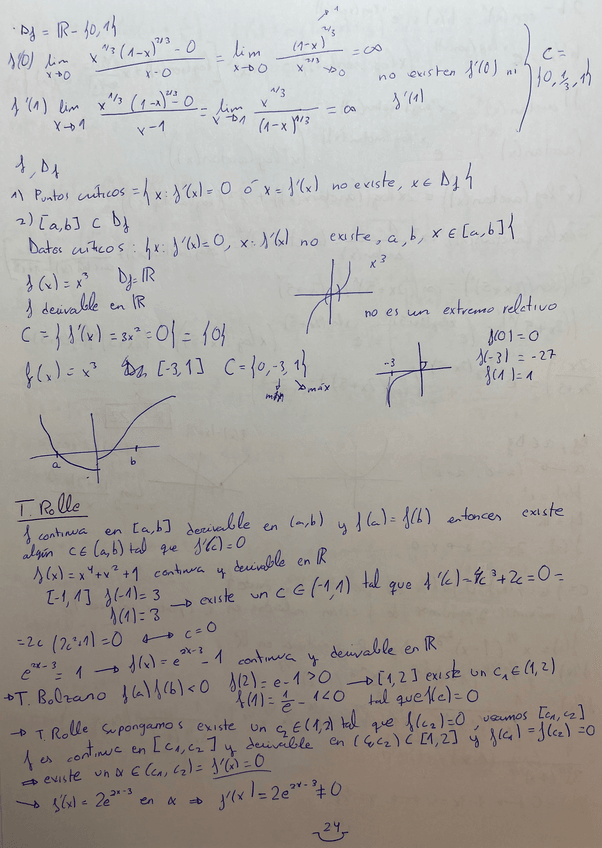 · Df = ℝ - {0,1}
f'(0) lim x→0 (x^{1/3} (1-x)^{2/3} - 0)/(x-0) = lim x→0 (1-x)^{2/3}→1 / x^{2/3}→0 = ∞
no existen f'(0) ni f'(1)
C = {0, 1/3, 1}
f'(1) lim x→1 (x^{1/3} (1-x)^{2/3} - 0)/(x-1) = lim x→1 x^{1/3} / (1-x)^{1/3} = ∞
f, Df
1) Puntos críticos = {x: f'(x) = 0 ó x = f'(x) no existe, x ∈ Df}
2) [a,b] ⊂ Df
Datos críticos: {x: f'(x)=0, x: f'(x) no existe, a, b, x ∈ [a,b]}
f(x) = x³ Df = ℝ
x³
f derivable en ℝ
no es un extremo relativo
C = {f'(x) = 3x² = 0} = {0}
f(x) = x³ [-3,1] C = {0, -3, 1}
mín máx
-3
f(0) = 0
f(-3) = -27
f(1) = 1
a b
T. Rolle
f continua en [a,b] derivable en (a,b) y f(a) = f(b) entonces existe
algún c ∈ (a,b) tal que f'(c) = 0
f(x) = x⁴ + x² + 1 continua y derivable en ℝ
[-1,1] f(-1) = 3
f(1) = 3 → existe un c ∈ (-1,1) tal que f'(c) = 4c³ + 2c = 0 =
= 2c (2c²+1) = 0 ⟷ c = 0
e^{2x-3} = 1 → f(x) = e^{2x-3} - 1 continua y derivable en ℝ
→ T. Bolzano f(a) f(b) < 0 f(2) = e - 1 > 0 → [1,2] existe un c₁ ∈ (1,2)
f(1) = 1/e - 1 < 0 tal que f(c) = 0
→ T. Rolle supongamos existe un c₂ ∈ (1,2) tal que f(c₂) = 0, usamos [c₁, c₂]
f es continua en [c₁, c₂] y derivable en (c₁, c₂) ⊂ [1,2] y f(c₁) = f(c₂) = 0
⇒ existe un α ∈ (c₁, c₂) = f'(x) = 0
→ f'(x) = 2e^{2x-3} en α ⇒ f'(x) = 2e^{2x-3} ≠ 0
24